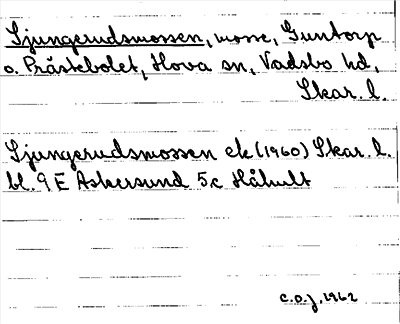 Ljungerudsmossen, mosse, Guntorp
o. Prästebolet, Hova sn, Vadsbo hd,
Skar. l.
Ljungerudsmossen ek (1960) Skar. l.
bl. 9 E Askersund 5c Håhult
C.O.J. 1962